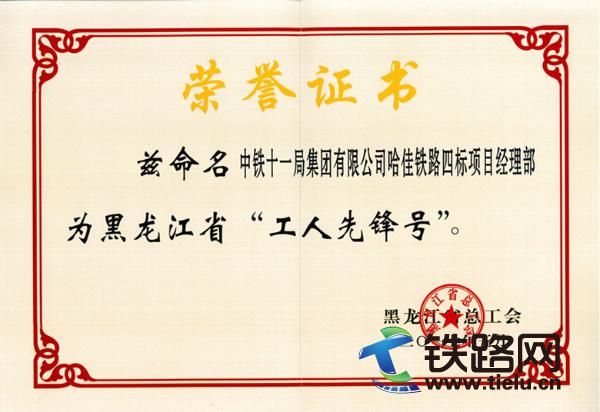 荣誉证书
兹命名中铁十一局集团有限公司哈佳铁路四标项目经理部
为黑龙江省“工人先锋号”。
黑龙江省总工会
铁路网
www.tielu.cn